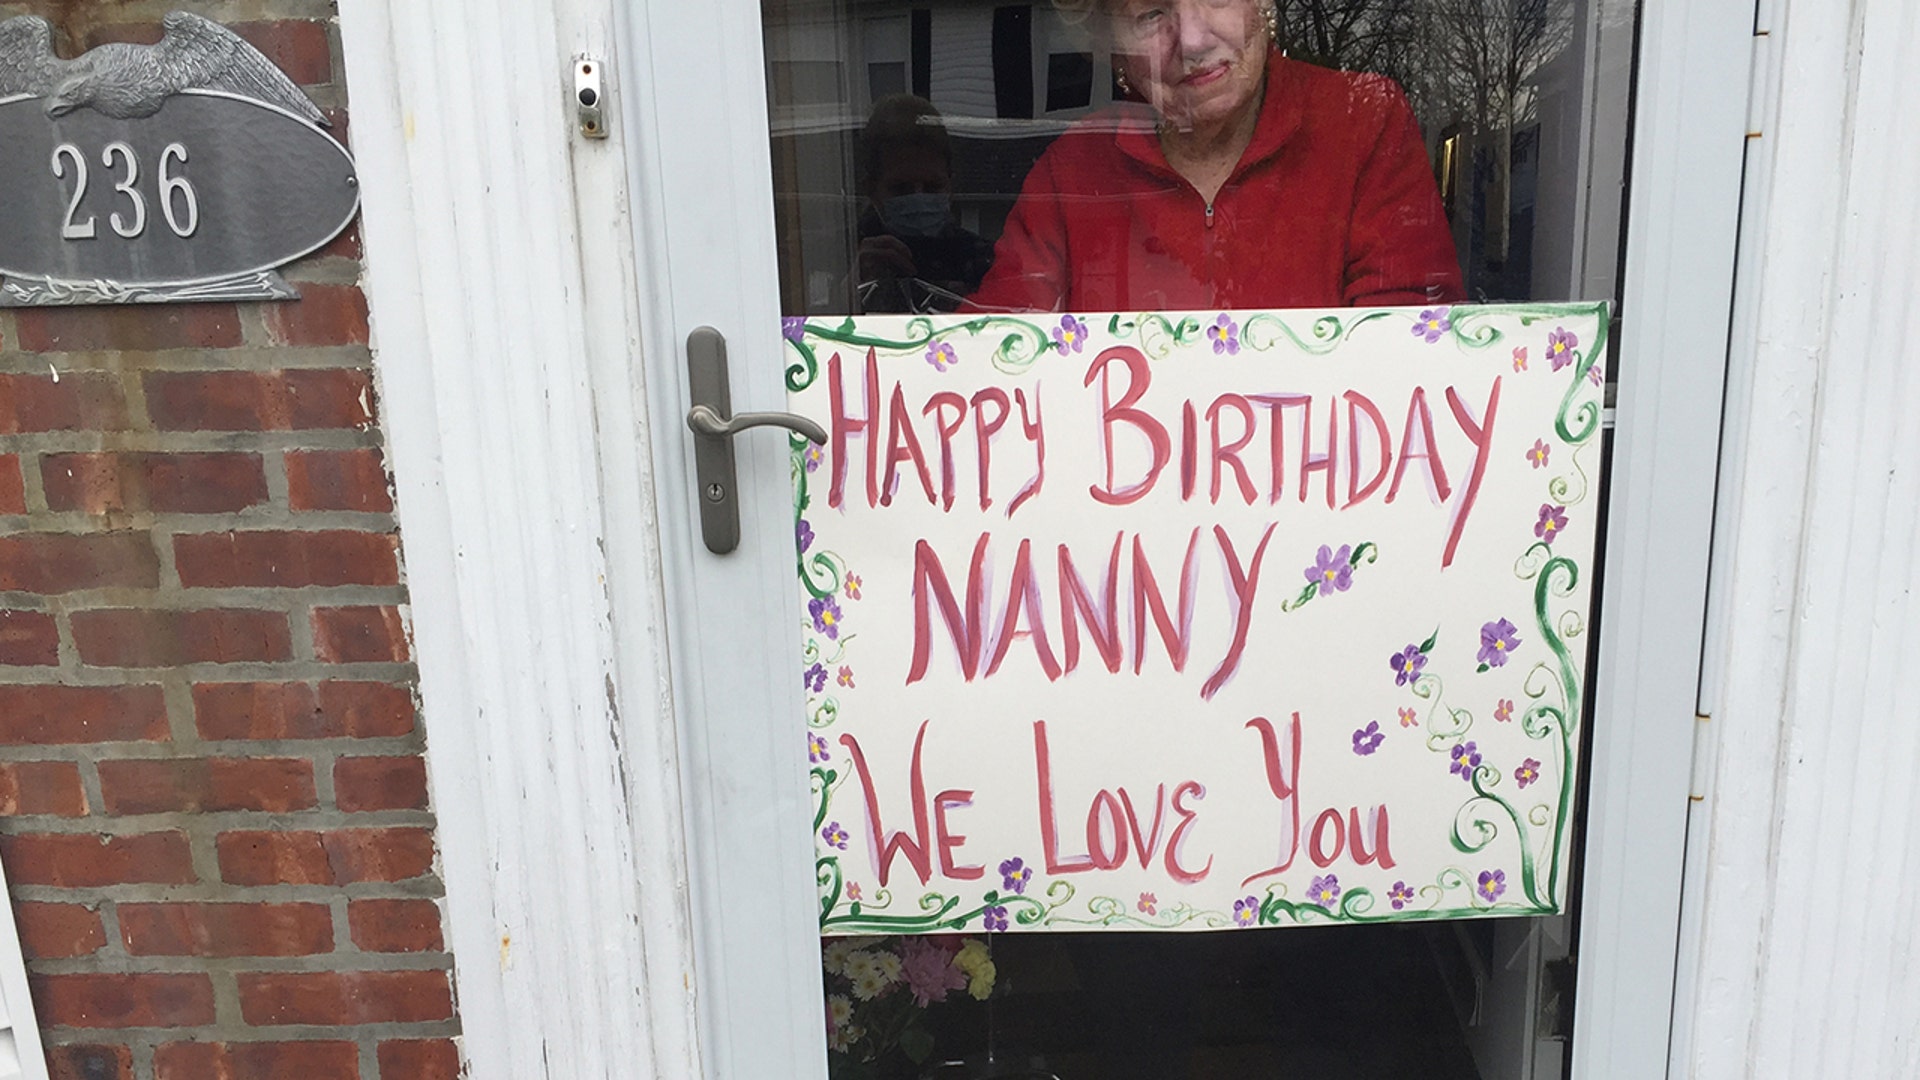 236
HAPPY BIRTHDAY
NANNY
WE LOVE YOU